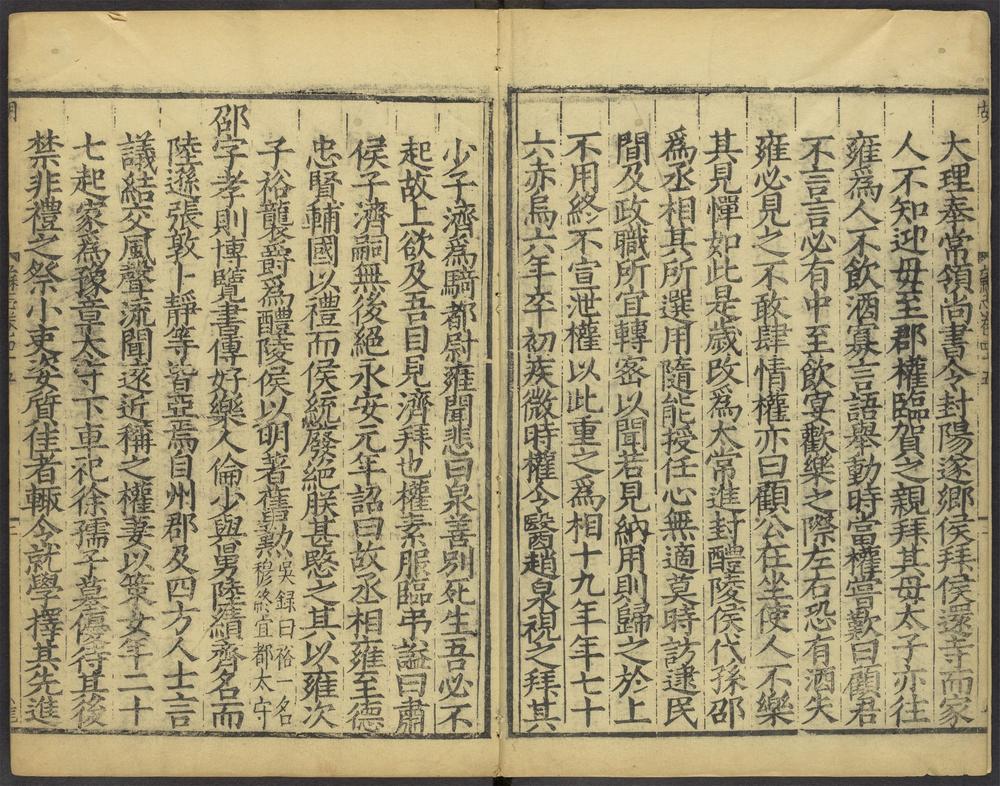 大理奉常領尚書令封陽遂鄉侯拜侯還寺而家
人不知迎母至郡權臨賀之親拜其母太子亦往
雍爲人不飲酒寡言語舉動時當權嘗歎曰顧君
不言言必有中至飲宴歡樂之際左右恐有酒失
雍必見之不敢肆情權亦曰顧公在坐使人不樂
其見憚如此是歲改爲太常進封醴陵侯代孫邵
爲丞相其所選用隨能授任心無適莫時訪逮民
間及政職所宜轉密以聞若見納用則歸之於上
不用終不宣泄權以此重之爲相十九年年七十
六赤烏六年卒初疾微時權令醫趙泉視之拜其
少子濟爲騎都尉雍聞悲曰泉善別死生吾必不
起故上欲及吾目見濟拜也權素服臨弔謚曰肅
侯子濟嗣無後絕永安元年詔曰故丞相雍至德
忠賢輔國以禮而侯統廢絕朕甚愍之其以雍次
子裕襲爵爲醴陵侯以明著舊勳吳錄曰裕一名穆終宜都太守
邵字孝則博覽書傳好樂人倫少與舅陸績齊名而
陸遜張敦卜靜等皆亞焉自州郡及四方人士言
議結交風聲流聞遠近稱之權妻以策女年二十
七起家爲豫章太守下車祀徐孺子墓優待其後
禁非禮之祭小吏姿質佳者輒令就學擇其先進